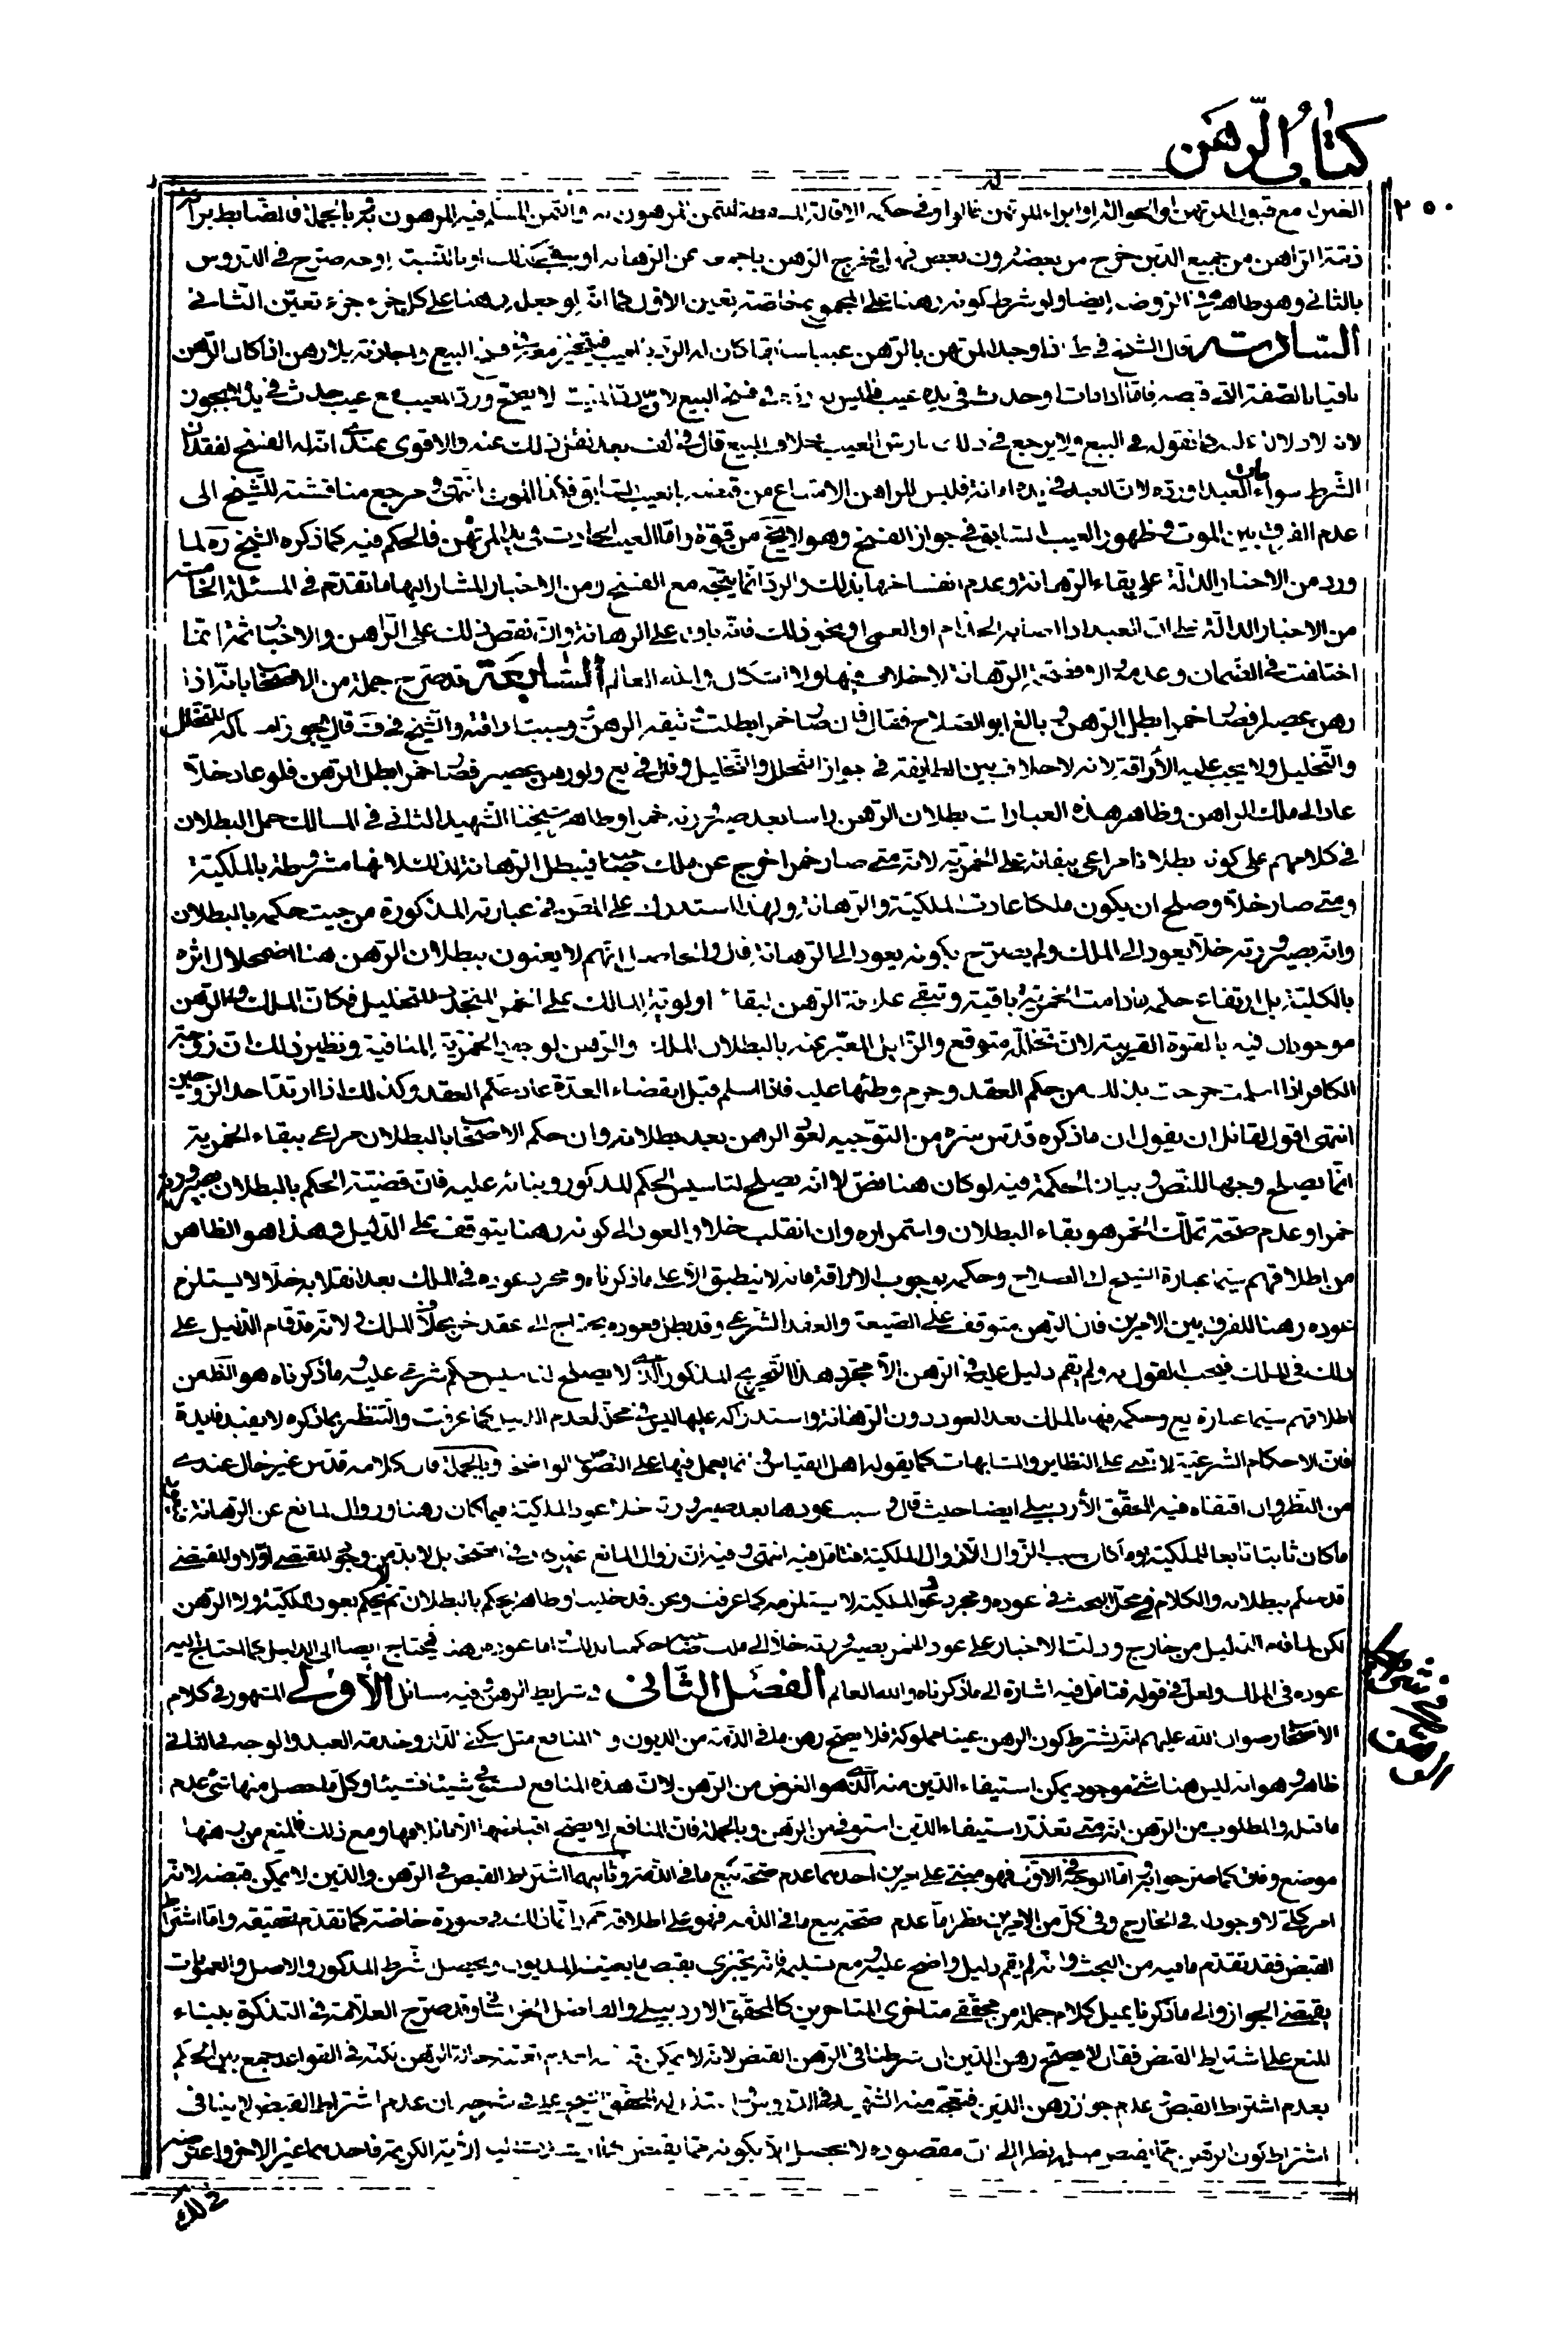 كتاب الرهن
٢٥٠
الضمان مع قبول المرتهن او الحوالة او ابراء المرتهن قالوا وفى حكمه الاقالة المسقطة للثمن المرهون به والثمن المسلم فيه المرهون به وبالجملة فالضابط براءة
ذمة الراهن من جميع الدين خرج من بعضه دون بعض فهل يخرج الرهن باجمعه من الرهانة او يبقى كذلك او بالنسبة اوجه صرح فى الدروس
بالثانى وهو ظاهره فى الروض ايضا ولو شرط كونه رهنا على المجموع خاصة تعين الاول كما انه لو جعل رهنا على كل جزء جزء تعين الثانى
السادسة قال الشيخ فى ط اذا وجد المرتهن بالرهن عيبا سابقا كان له الرد بالعيب فسخ البيع واجازته بلا رهن اذا كان الرهن
باقيا بالصفة التى قبضه فاما اذا مات او حدث فى يده عيب فليس له رده وفسخ البيع لان رد الميت لا يصح ورد المعيب مع عيب حدث فى يده لا يجوز
لانه لا دلالة عليه كما نقوله فى البيع ولا يرجع فى ذلك بارش العيب بخلاف البيع قال فى لف بعد نقل ذلك عنه والاقوى عندى ان له الفسخ لفقدان
الشرط سواء مات العبد او رده لان العبد فى يده امانة فليس للراهن الامتناع من قبضه بالعيب السابق فكذا الموت انتهى ومرجع مناقشته للشيخ الى
عدم الفرق بين الموت وظهور العيب السابق فى جواز الفسخ وهو لا يخ من قوة واما العيب الحادث فى يد المرتهن فالحكم فيه كما ذكره الشيخ ره لما
ورد من الاخبار الدالة على بقاء الرهانة وعدم انفساخها بذلك والرد انما يتجه مع الفسخ ومن الاخبار المشار اليها ما تقدم فى المسئلة الخامسة
من الاخبار الدالة على ان العبد اذا اصابه الجذام او العمى او نحو ذلك فانه باق على الرهانة وان نقص ذلك على الراهن والاخبار ثمة انما
اختلفت فى الضمان وعدمه واما صحة الرهانة لا خلاف فيها ولا اشكال والله العالم السابعة قد صرح جملة من الاصحاب بانه اذا
رهن عصيرا فصار خمرا بطل الرهن وبالغ ابو الصلاح فقال فان صار خمرا بطلت وثيقة الرهن ووجبت اراقته والشيخ فى ف قال يجوز امساكه للتخلل
والتخليل ولا يجب عليه الاراقة لانه لا خلاف بين الطايفة فى جواز التحلل والتخليل وقال فى يع ولو رهن عصيرا فصار خمرا بطل الرهن فلو عاد خلا
عاد الى ملك الراهن وظاهر هذه العبارات بطلان الرهن راسا بعد صيرورته خمرا وظاهر شيخنا الشهيد الثانى فى المسالك حمل البطلان
فى كلامهم على كونه بطلانا مراعى ببقائه على الخمرية لانه متى صار خمرا خرج عن ملك صاحبه فيبطل الرهانة لذلك لانها مشروطة بالملكية
ومتى صار خلا وصلح ان يكون ملكا عادت الملكية والرهانة ولهذا استدرك على المص فى عبارته المذكورة من حيث حكمه بالبطلان
وانه بصيرورته خلا يعود الى الملك ولم يصرح بكونه يعود الى الرهانة قال والحاصل انهم لا يعنون ببطلان الرهن هنا اضمحلال اثره
بالكلية بل ارتفاع حكمه ما دامت الخمرية باقية وتبقى علاقة الرهن لبقاء اولوية المالك على الخمر المتخذة للتخليل فكان الملك والرهن
موجودان فيه بالقوة القريبة لان تخلله متوقع والزايل المعبر عنه بالبطلان الملك والرهن لوجود الخمرية المنافية ونظير ذلك ان زوجة
الكافر اذا اسلمت خرجت بذلك من حكم العقد وحرم وطئها عليه فاذا اسلم قبل انقضاء العدة عاد حكم العقد وكذلك اذا ارتد احد الزوجين
انتهى اقول لقائل ان يقول ان ما ذكره قدس سره من التوجيه لعود الرهن بعد بطلانه وان حكم الاصحاب بالبطلان مراعى ببقاء الخمرية
انما يصلح وجها للنص وبيان الحكمة فيه لو كان هنا نص لا انه يصلح لتاسيس الحكم المذكور وبنائه عليه فان قضية الحكم بالبطلان بصيرورته
خمرا وعدم صحة تملك الخمر هو بقاء البطلان واستمراره وان انقلب خلا والعود الى كونه رهنا يتوقف على الدليل وهذا هو الظاهر
من اطلاقهم سيما عبارة الشيخ ابى الصلاح وحكمه بوجوب الاراقة فانه لا ينطبق الا على ما ذكرناه ومجرد عوده فى الملك بعد انقلابه خلا لا يستلزم
عوده رهنا للفرق بين الامرين فان الرهن متوقف على الصيغة والعقد الشرعى وقد بطل فعوده يحتاج الى عقد اخر بخلاف الملك لانه قد قام الدليل على
ذلك فى الملك فيجب القول به ولم يقم دليل عليه فى الرهن الا مجرد هذا التخريج المذكور الذى لا يصلح لتاسيس حكم شرعى عليه وما ذكرناه هو الظ من
اطلاقهم سيما عبارة يع وحكمه فيها بالملك بعد العود دون الرهانة واستدراكه عليها ليس فى محله لعدم الدليل كما عرفت والتنظير بما ذكره لا يفيد فايدة
فان الاحكام الشرعية لا تبنى على النظاير والمشابهات كما يقوله اهل القياس وانما يعمل فيها على النصوص الواضحة وبالجملة فان كلامه قدس غير خال عندى
من النظر وان اقتفاه فيه المحقق الأردبيلى ايضا حيث قال وسبب عودها بعد صيرورته خلا عود الملكية فيما كان رهنا وزوال المانع عن الرهانة
ما كان ثابتا تابعا للملكية وما كان سبب الزوال الا زوال الملكية فتامل فيه انتهى وفيه ان زوال المانع غير كاف فى التحقق بل لا بد من وجود المقتضى اولا والمقتضى
قد حكم ببطلانه والكلام فى محل البحث فى عوده ومجرد عود الملكية لا يستلزمه كما عرفت ونحن قد خلينا وظاهره يحكم بالبطلان ثم يحكم بعود الملكية ولا الرهن
لكن لما قام الدليل من خارج ودلت الاخبار على عود الخمر بصيرورته خلا الى ملك صاحبه حكمنا بذلك اما عوده رهنا فيحتاج ايضا الى الدليل كما احتاج اليه
عوده فى الملك ولعل فى قوله فتامل فيه اشارة الى ما ذكرناه والله العالم الفصل الثانى فى شرايط الرهن وفيه مسائل الأولى المشهور فى كلام
الاصحاب رضوان الله عليهم انه يشترط كون الرهن عينا مملوكة فلا يصح رهن ما فى الذمة من الديون ولا المنافع مثل سكنى الدار وخدمة العبد والوجه فى الثانى
ظاهر وهو انه ليس هنا شئ موجود يمكن استيفاء الدين منه الذى هو الغرض من الرهن لان هذه المنافع تستوفى شيئا فشيئا وكل ما حصل منها شئ عدم
ما قبله والمطلوب من الرهن انه متى تعذر استيفاء الدين استوفى من الرهن وبالجملة فان المنافع لا يصح اقباضها الا باتلافها ومع ذلك فالمنع من رهنها
موضع وفاق كما صرحوا به واما الوجه فى الاول فهو مبنى على امرين احدهما عدم صحة بيع ما فى الذمة وثانيهما اشتراط القبض فى الرهن والدين لا يمكن قبضه لانه
امر كلى لا وجود له فى الخارج وفى كل من الامرين نظر اما عدم صحة بيع ما فى الذمة فهو على اطلاقه مم وانما ذلك فى صورة خاصة كما تقدم تحقيقه واما اشتراط
القبض فقد تقدم ما فيه من البحث وانه لم يقم دليل واضح عليه ومع تسليمه فانه يجتزى بقبض ما يعينه المديون ويحصل شرط المذكور والاصل والعمومات
يقتضى الجواز والى ما ذكرنا يميل كلام جملة من محققى متاخرى المتاخرين كالمحقق الاردبيلى والفاضل الخراسانى وقد صرح العلامة فى التذكرة ببناء
المنع على اشتراط القبض فقال لا يصح رهن الدين ان شرطنا فى الرهن القبض لانه لا يمكن قبضه لكنه فى القواعد جمع بين الحكم
بعدم اشتراط القبض وعدم جواز رهن الدين فتعجب منه الشهيد فى الدروس واعتذر له المحقق الشيخ على فى شرحه بان عدم اشتراط القبض لا ينافى
اشتراط كون الرهن مما يقبض مثله نظرا الى ان مقصوده لا يحصل الا بكونه مما يقبض الآية الكريمة فاحدهما غير الاخر واعترضه
فى شرايط الرهن